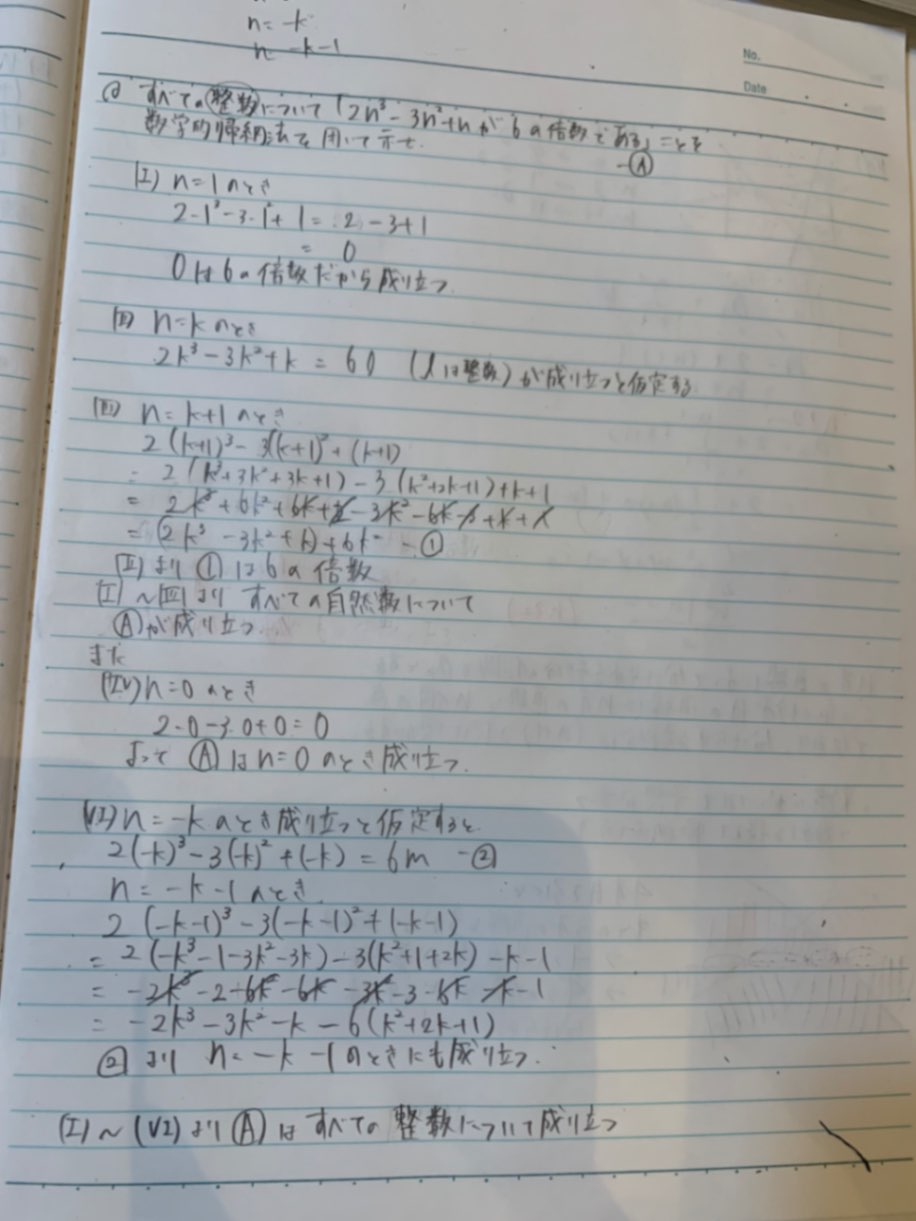 n=-k
n -k-1
No.
Date
すべての整数について「2n³-3n²+nが6の倍数である」ことを
数学的帰納法を用いて示せ. -Ⓐ
(I) n=1のとき
2・1³-3・1²+1=2-3+1
= 0
0は6の倍数だから成り立つ.
(II) n=kのとき
2k³-3k²+k = 6l (lは整数)が成り立つと仮定する.
(III) n=k+1のとき
2(k+1)³-3(k+1)²+(k+1)
= 2(k³+3k²+3k+1)-3(k²+2k+1)+k+1
= 2k³+6k²+6k+2-3k²-6k-3+k+1
= (2k³-3k²+k)+6k² -①
(II)より①は6の倍数
(I)~(III)より すべての自然数について
Ⓐが成り立つ
また
(IV) n=0のとき
2・0-3・0+0=0
よって Ⓐはn=0のとき成り立つ.
(VI) n=-kのとき成り立つと仮定すると
2(-k)³-3(-k)²+(-k)=6m -②
n=-k-1のとき.
2(-k-1)³-3(-k-1)²+(-k-1)
= 2(-k³-1-3k²-3k)-3(k²+1+2k)-k-1
= -2k³-2-6k²-6k-3k²-3-6k-k-1
= -2k³-3k²-k-6(k²+2k+1)
②より n=-k-1のときにも成り立つ.
(I)~(VI)よりⒶはすべての整数について成り立つ